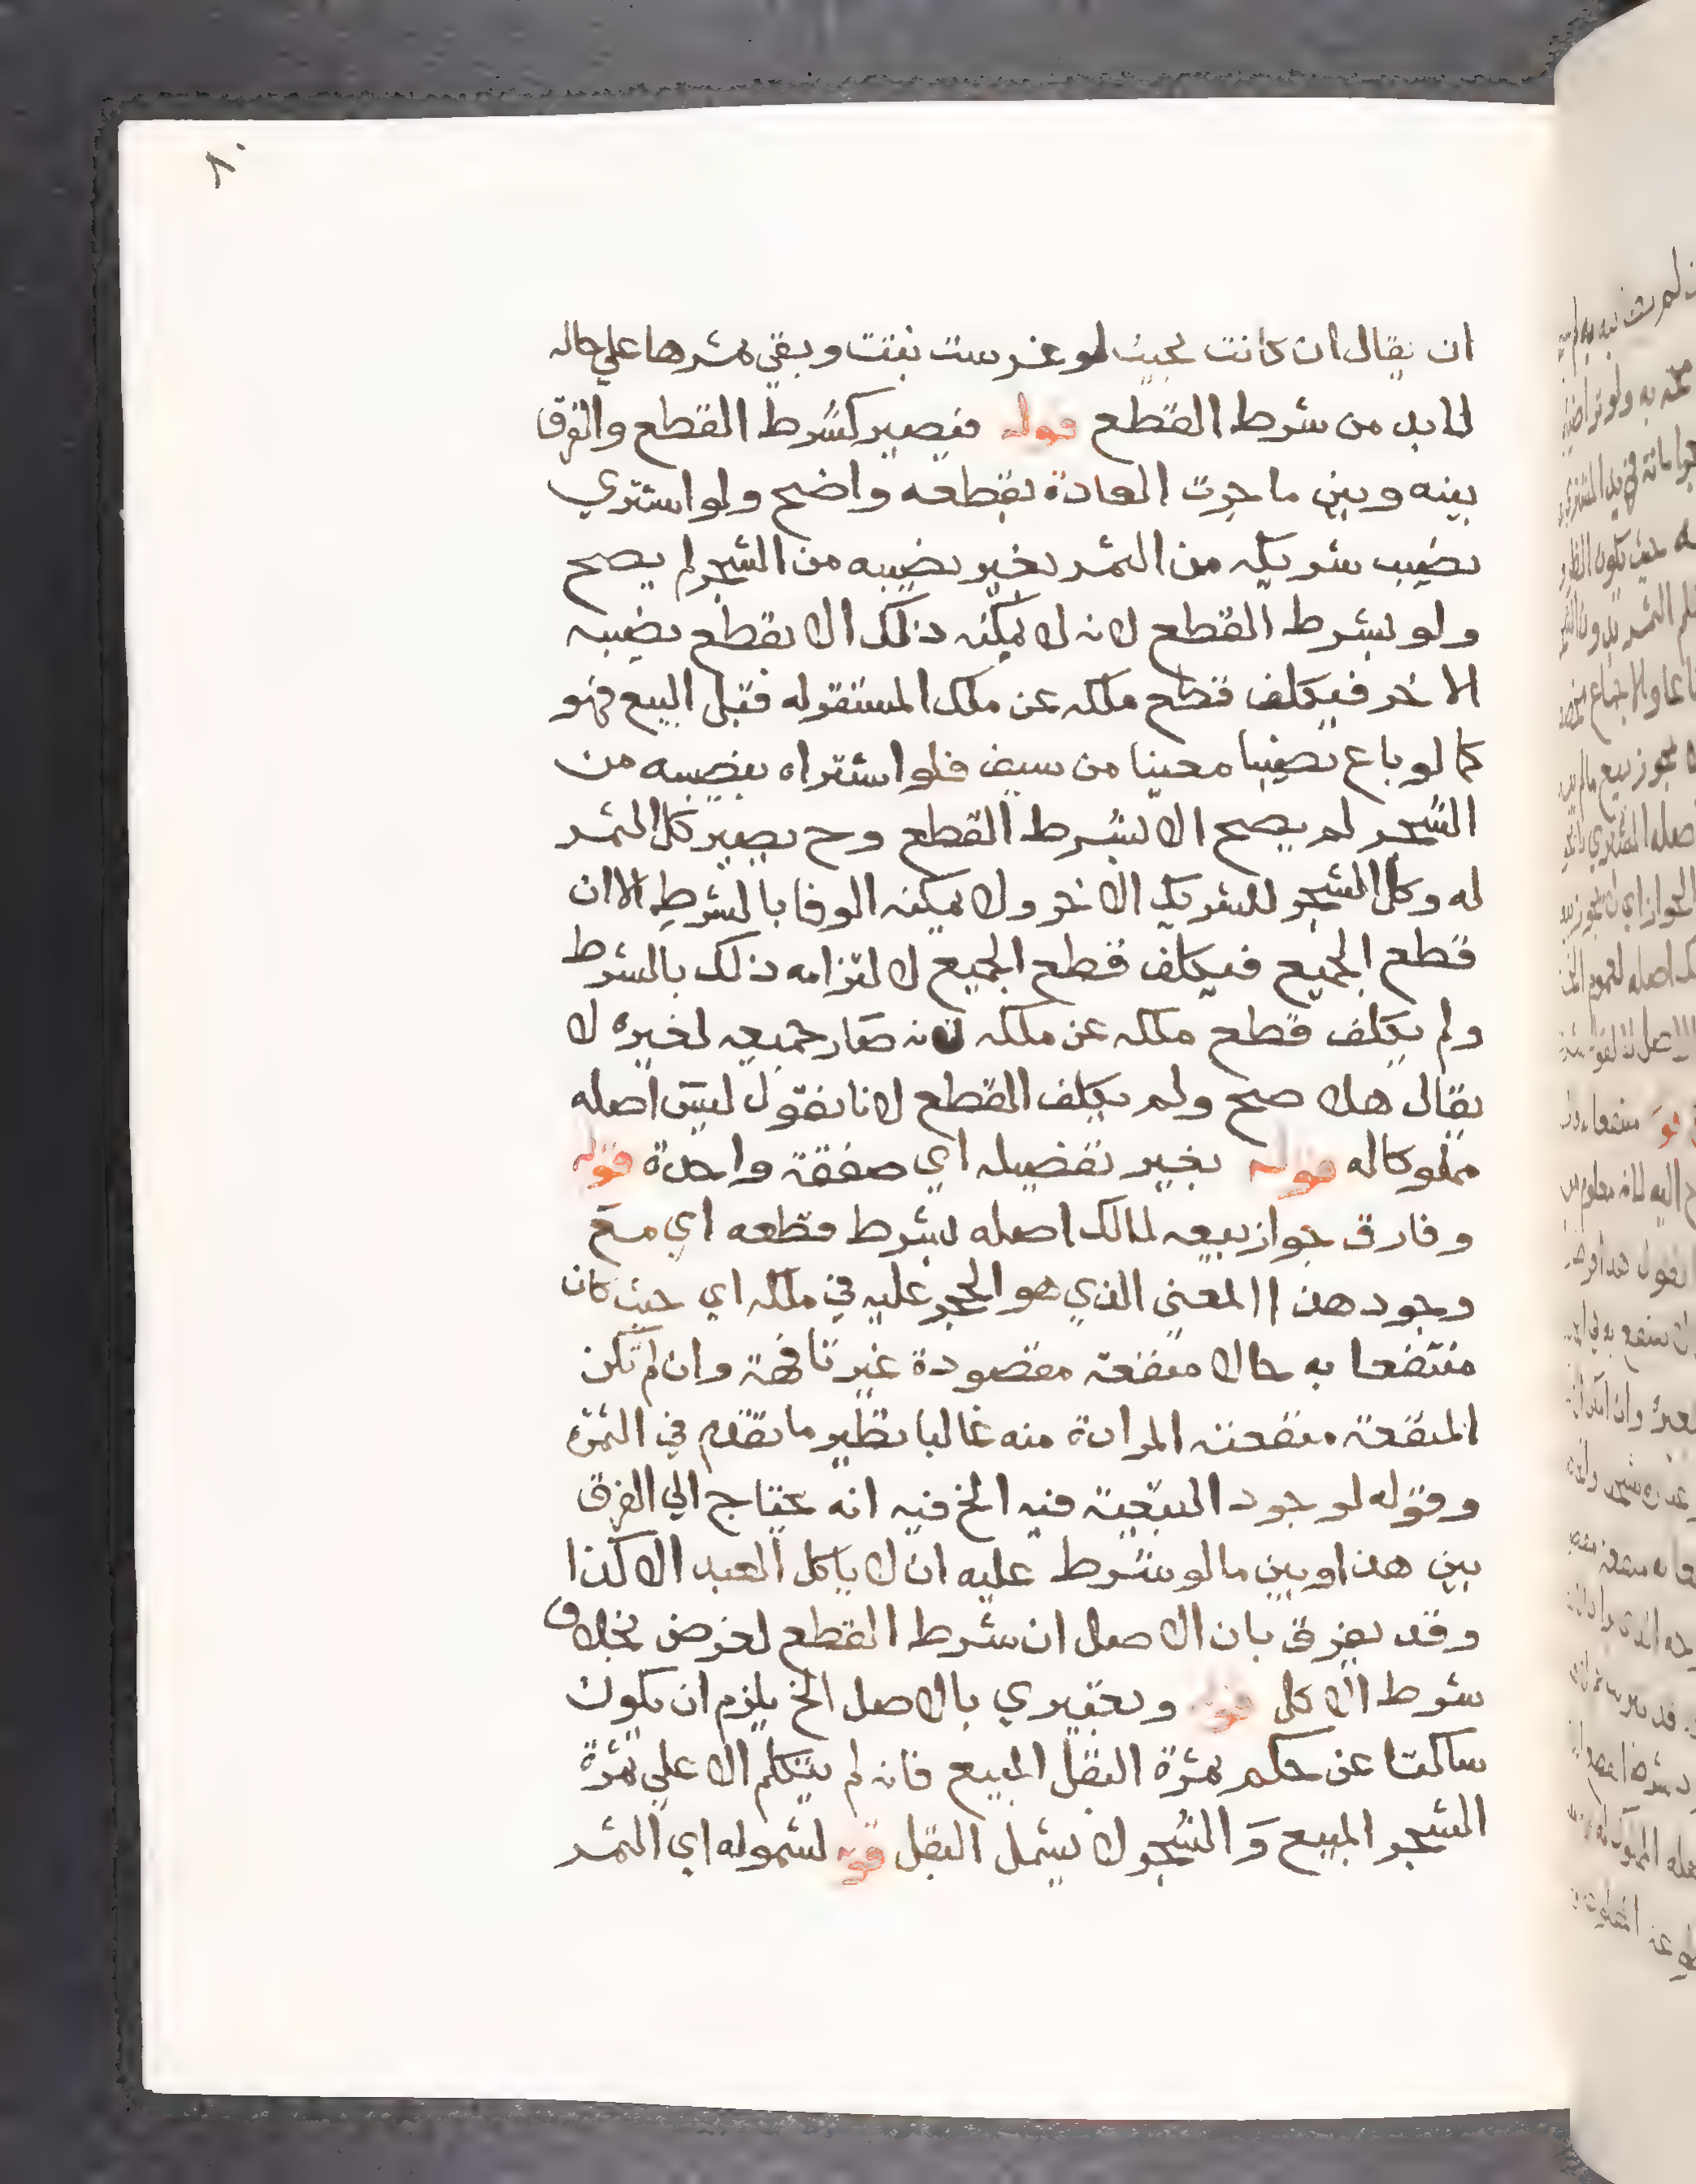 ٨٠
ان يقال ان كانت بحيث لو غرست نبتت وبقي ثمرها علي حاله
لا بد من شرط القطع قوله فيصير كشرط القطع والفرق
بينه وبين ما جرت العادة بقطعه واضح ولو اشتري
نصيب شريكه من الثمر بغير نصيبه من الشجر لم يصح
ولو بشرط القطع لانه لا يمكنه ذلك الا بقطع نصيبه
الاخر فيكلف قطع ملكه عن ملك المستقر له قبل البيع فهو
كما لو باع نصيبا معينا من سيف فلو اشتراه بنصيبه من
الشجر لم يصح الا بشرط القطع وح يصير كل الثمر
له وكل الشجر للشريك الاخر ولا يمكنه الوفا بالشرط الا ان
قطع الجميع فيكلف قطع الجميع لالتزامه ذلك بالشرط
ولم يكلف قطع ملكه عن ملكه لانه صار جميعه لغيره لا
يقال هلا صح ولم يكلف القطع لانا نقول ليس اصله
مملوكا له قوله بغير تفصيله اي صفقة واحدة قوله
وفارق جواز بيعه لمالك اصله بشرط قطعه اي مع
وجود هذا المعني الذي هو الحجر عليه في ملكه اي حيث كان
منتفعا به حالا منفعة مقصودة غير تافهة وان لم تكن
المنفعة منفعته المرادة منه غالبا نظير ما تقدم في الثمرة
وقوله لوجود التبعية فيه الخ فيه انه يحتاج الي الفرق
بين هذا وبين ما لو شرط عليه ان لا ياكل العبد الا كذا
وقد يفرق بان الاصل ان شرط القطع لغرض بخلاف
شرط الاكل قوله وتعبيري بالاصل الخ يلزم ان يكون
ساكتا عن حكم ثمرة البقل المبيع فانه لم يتكلم الا علي ثمرة
الشجر المبيع والشجر لا يشمل البقل قوله لشموله اي الثمر